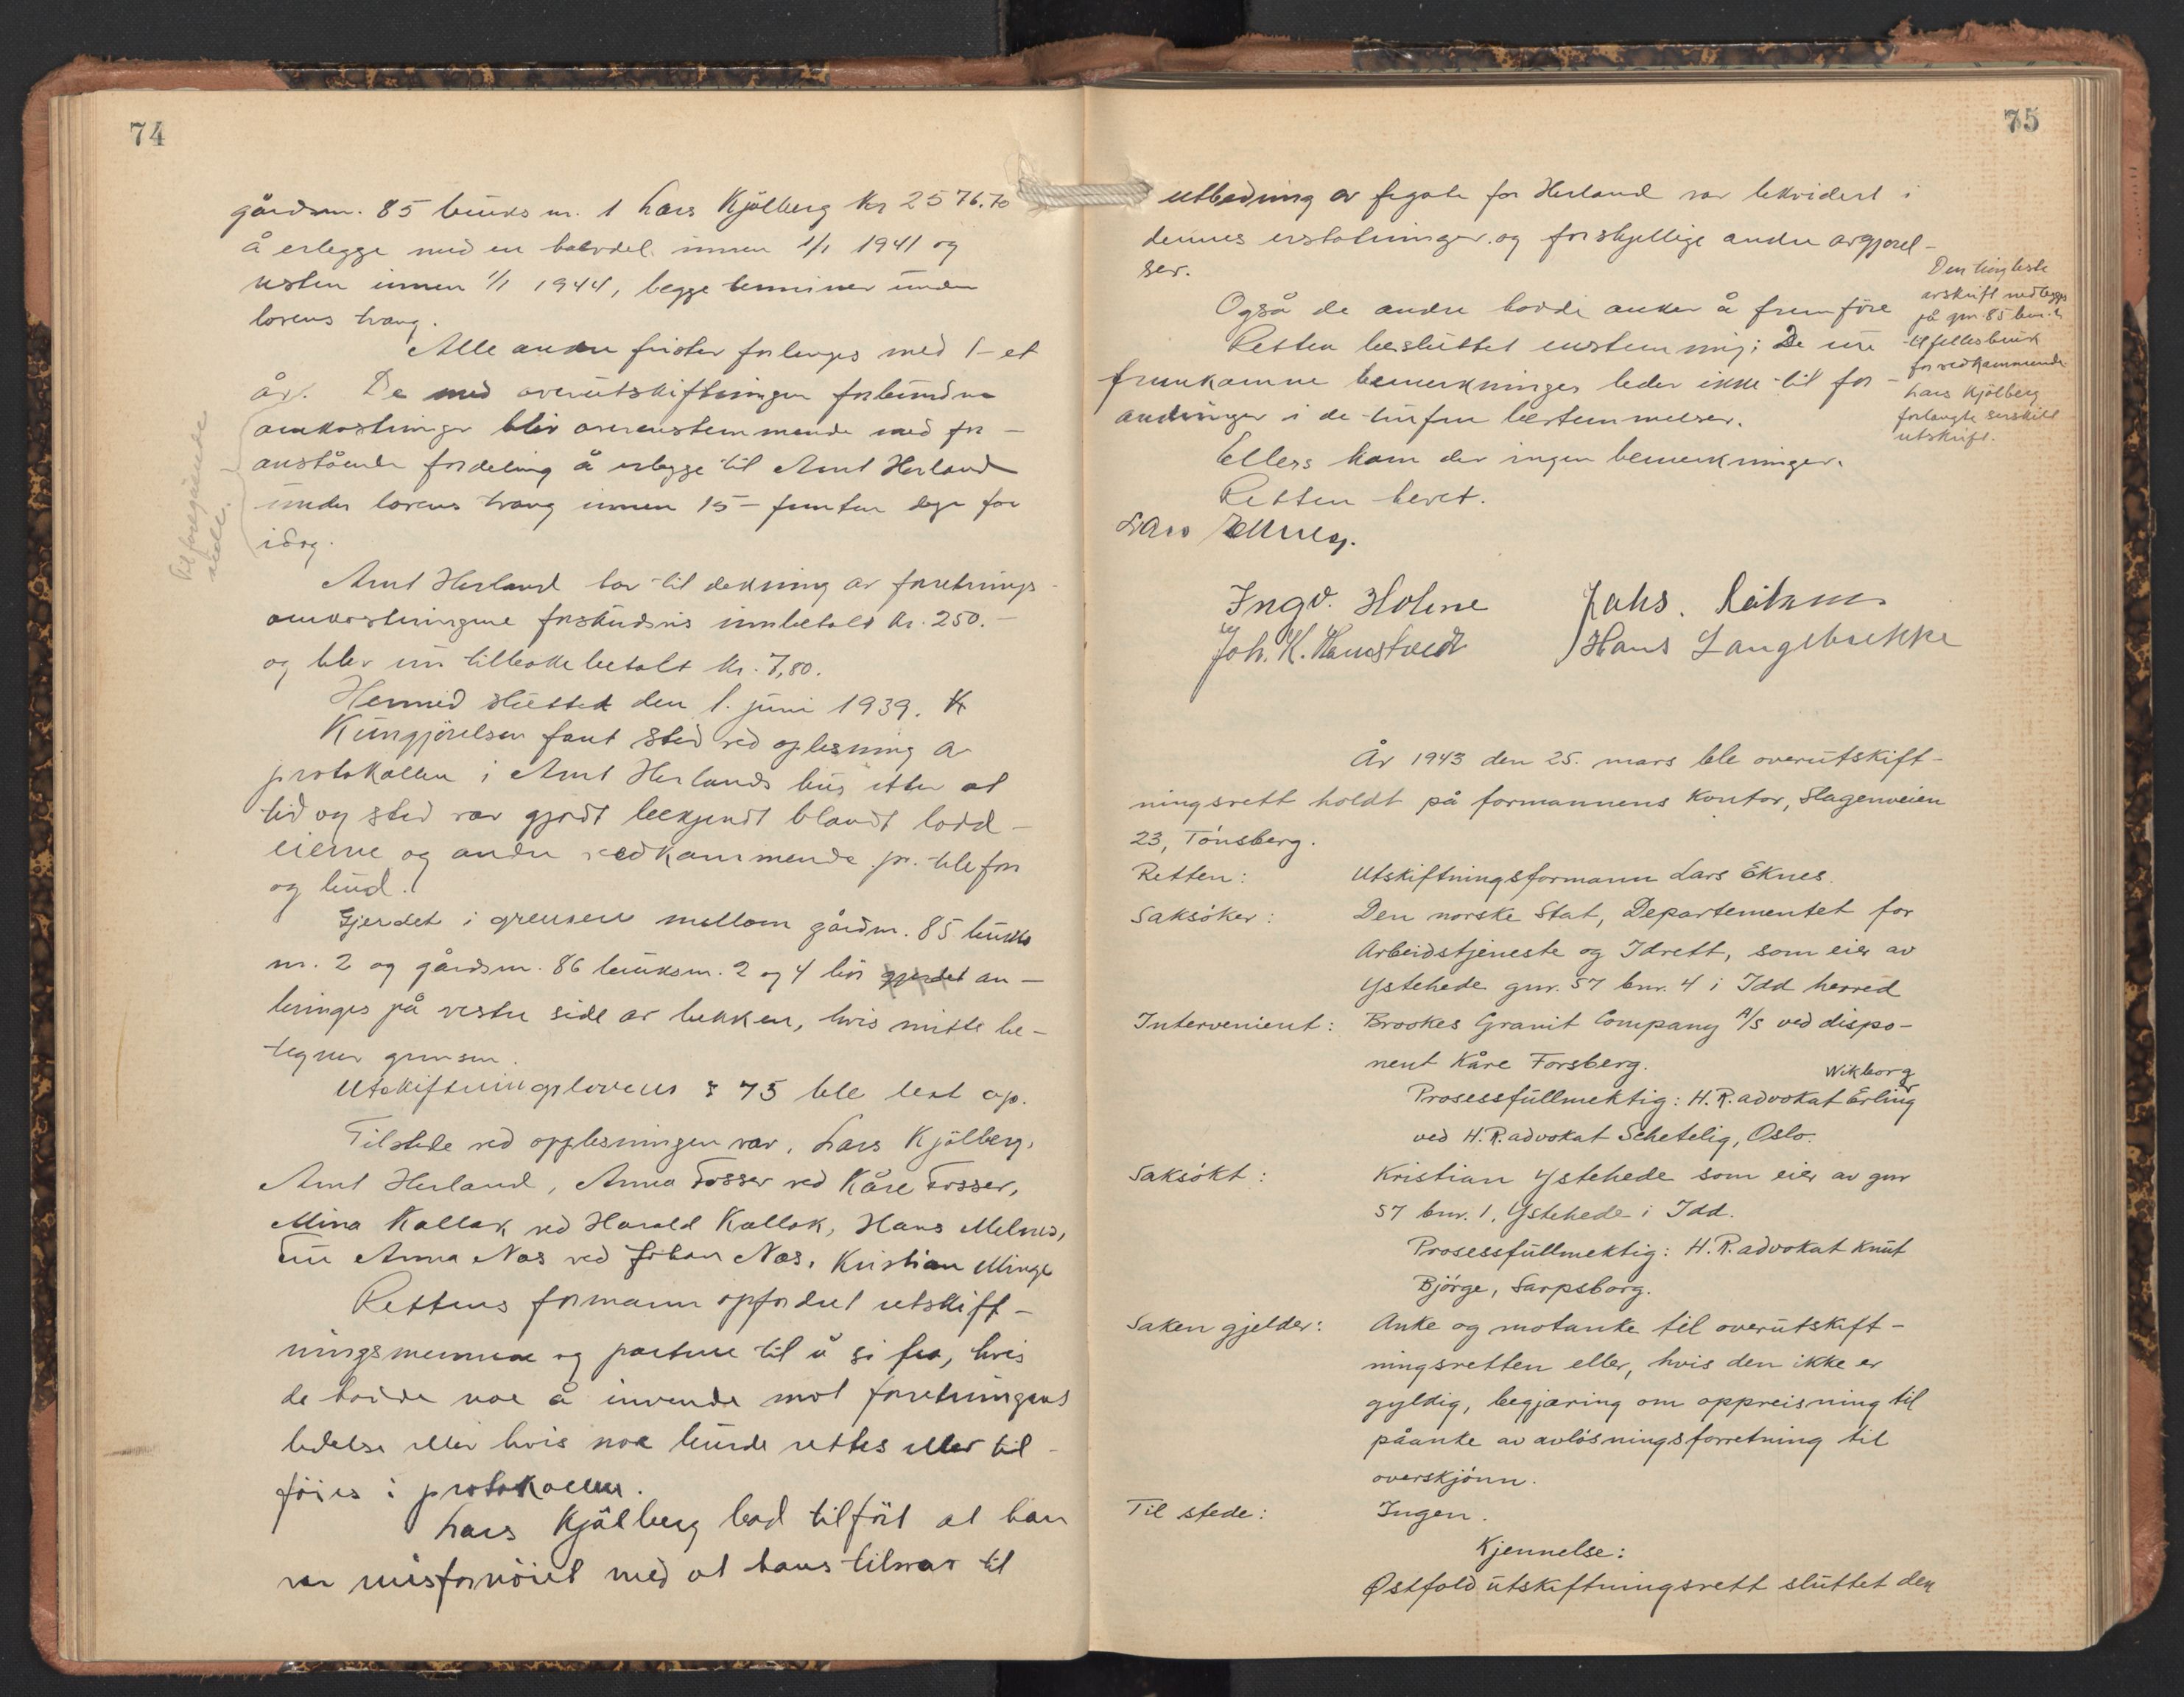 74
gårdsnr. 85 bruks nr. 1 Lars Kjölberg kr 2576.70
å erlegge med en halvdel innen 1/1 1941 og
resten innen 1/1 1944, begge terminer under
lovens tvang.
Alle andre frister forlenges med 1 - et
år. De med overutskiftningen forbundne
omkostninger blir overenstemmende med for-
anstående fordeling å erlegge til Arnt Herland
under lovens tvang innen 15 - femten dage fra
idag.
Til foregående
side.
Arnt Herland har til dekning av forretnings-
omkostningene forskudsvis innbetalt kr. 250.-
og blev nu tilbakebetalt kr. 7,80.
Hermed sluttet den 1. juni 1939. K
Kungjörelsen fant sted ved oplesning av
protokollen i Arnt Herlands hus etter at
tid og sted var gjordt bekjendt blandt lodd-
eierne og andre vedkommende pr. telefon
og bud.
Gjerdet i grensen mellom gårdnr. 85 bruks
nr. 2 og gårdsnr. 86 bruksnr. 2 og 4 bør gjerdet an-
bringes på vestre side av bekken, hvis midte be-
tegner grensen.
Utskiftningslovens § 75 ble lest op.
Tilstede ved opplesningen var, Lars Kjölberg,
Arnt Herland, Anna Tosser ved Kåre Tosser,
Mina Kallak ved Harald Kallak, Hans Melnes,
Fru Anna Nas ved Johan Nas, Kristian Minge
Rettens formann opfordret utskift-
ningsmennene og partene til å si fra, hvis
de hadde noe å invende mot forretningens
ledelse eller hvis noe burde rettes eller til-
föies i protokollen.
Lars Kjölberg bad tilfört at han
var misfornöiet med at hans tilsvar til
75
utbedning av fegate for Herland var lekvidert i
dennes erstatninger og forskjellige andre avgjörel-
ser.
Også de andre hadde anker å fremföre
Retten besluttet enstemmig: De nu
fremkomne bemerkninger leder ikke til for-
andringer i de trufne bestemmelser.
Ellers kom der ingen bemerkninger.
Retten hevet.
Den tingleste
avskrift vedlegges
på gnr. 85 bnr. 1
til fellesbruk
for vedkommende
Lars Kjölberg
forlangte serskilt
utskrift.
Lars Eknes.
Ingv. Holme
Joh. K. Hamstvedt
Hans Langebrekke
År 1943 den 25. mars ble overutskift-
ningsrett holdt på formannens kontor, Slagenveien
23, Tönsberg.
Retten: Utskiftningsformann Lars Eknes.
Saksöker: Den norske Stat, Departementet for
Arbeidstjeneste og Idrett, som eier av
Ystehede gnr. 57 bnr. 4 i Idd herred
Intervenient: Brookes Granit Company A/S ved dispo-
nent Kåre Forsberg.
Wikborg
Prosessfullmektig: H.R.advokat Erling
ved H.R.advokat Schetelig, Oslo.
Saksökt: Kristian Ystehede som eier av gnr
57 bnr. 1, Ystehede i Idd.
Prosessfullmektig: H.R.advokat Knut
Björge, Sarpsborg.
Saken gjelder: Anke og motanke til overutskift-
ningsretten eller, hvis den ikke er
gyldig, begjæring om oppreisning til
påanke av avlösningsforretning til
overskjönn.
Til stede: Ingen.
Kjennelse:
Østfold utskiftningsrett sluttet den